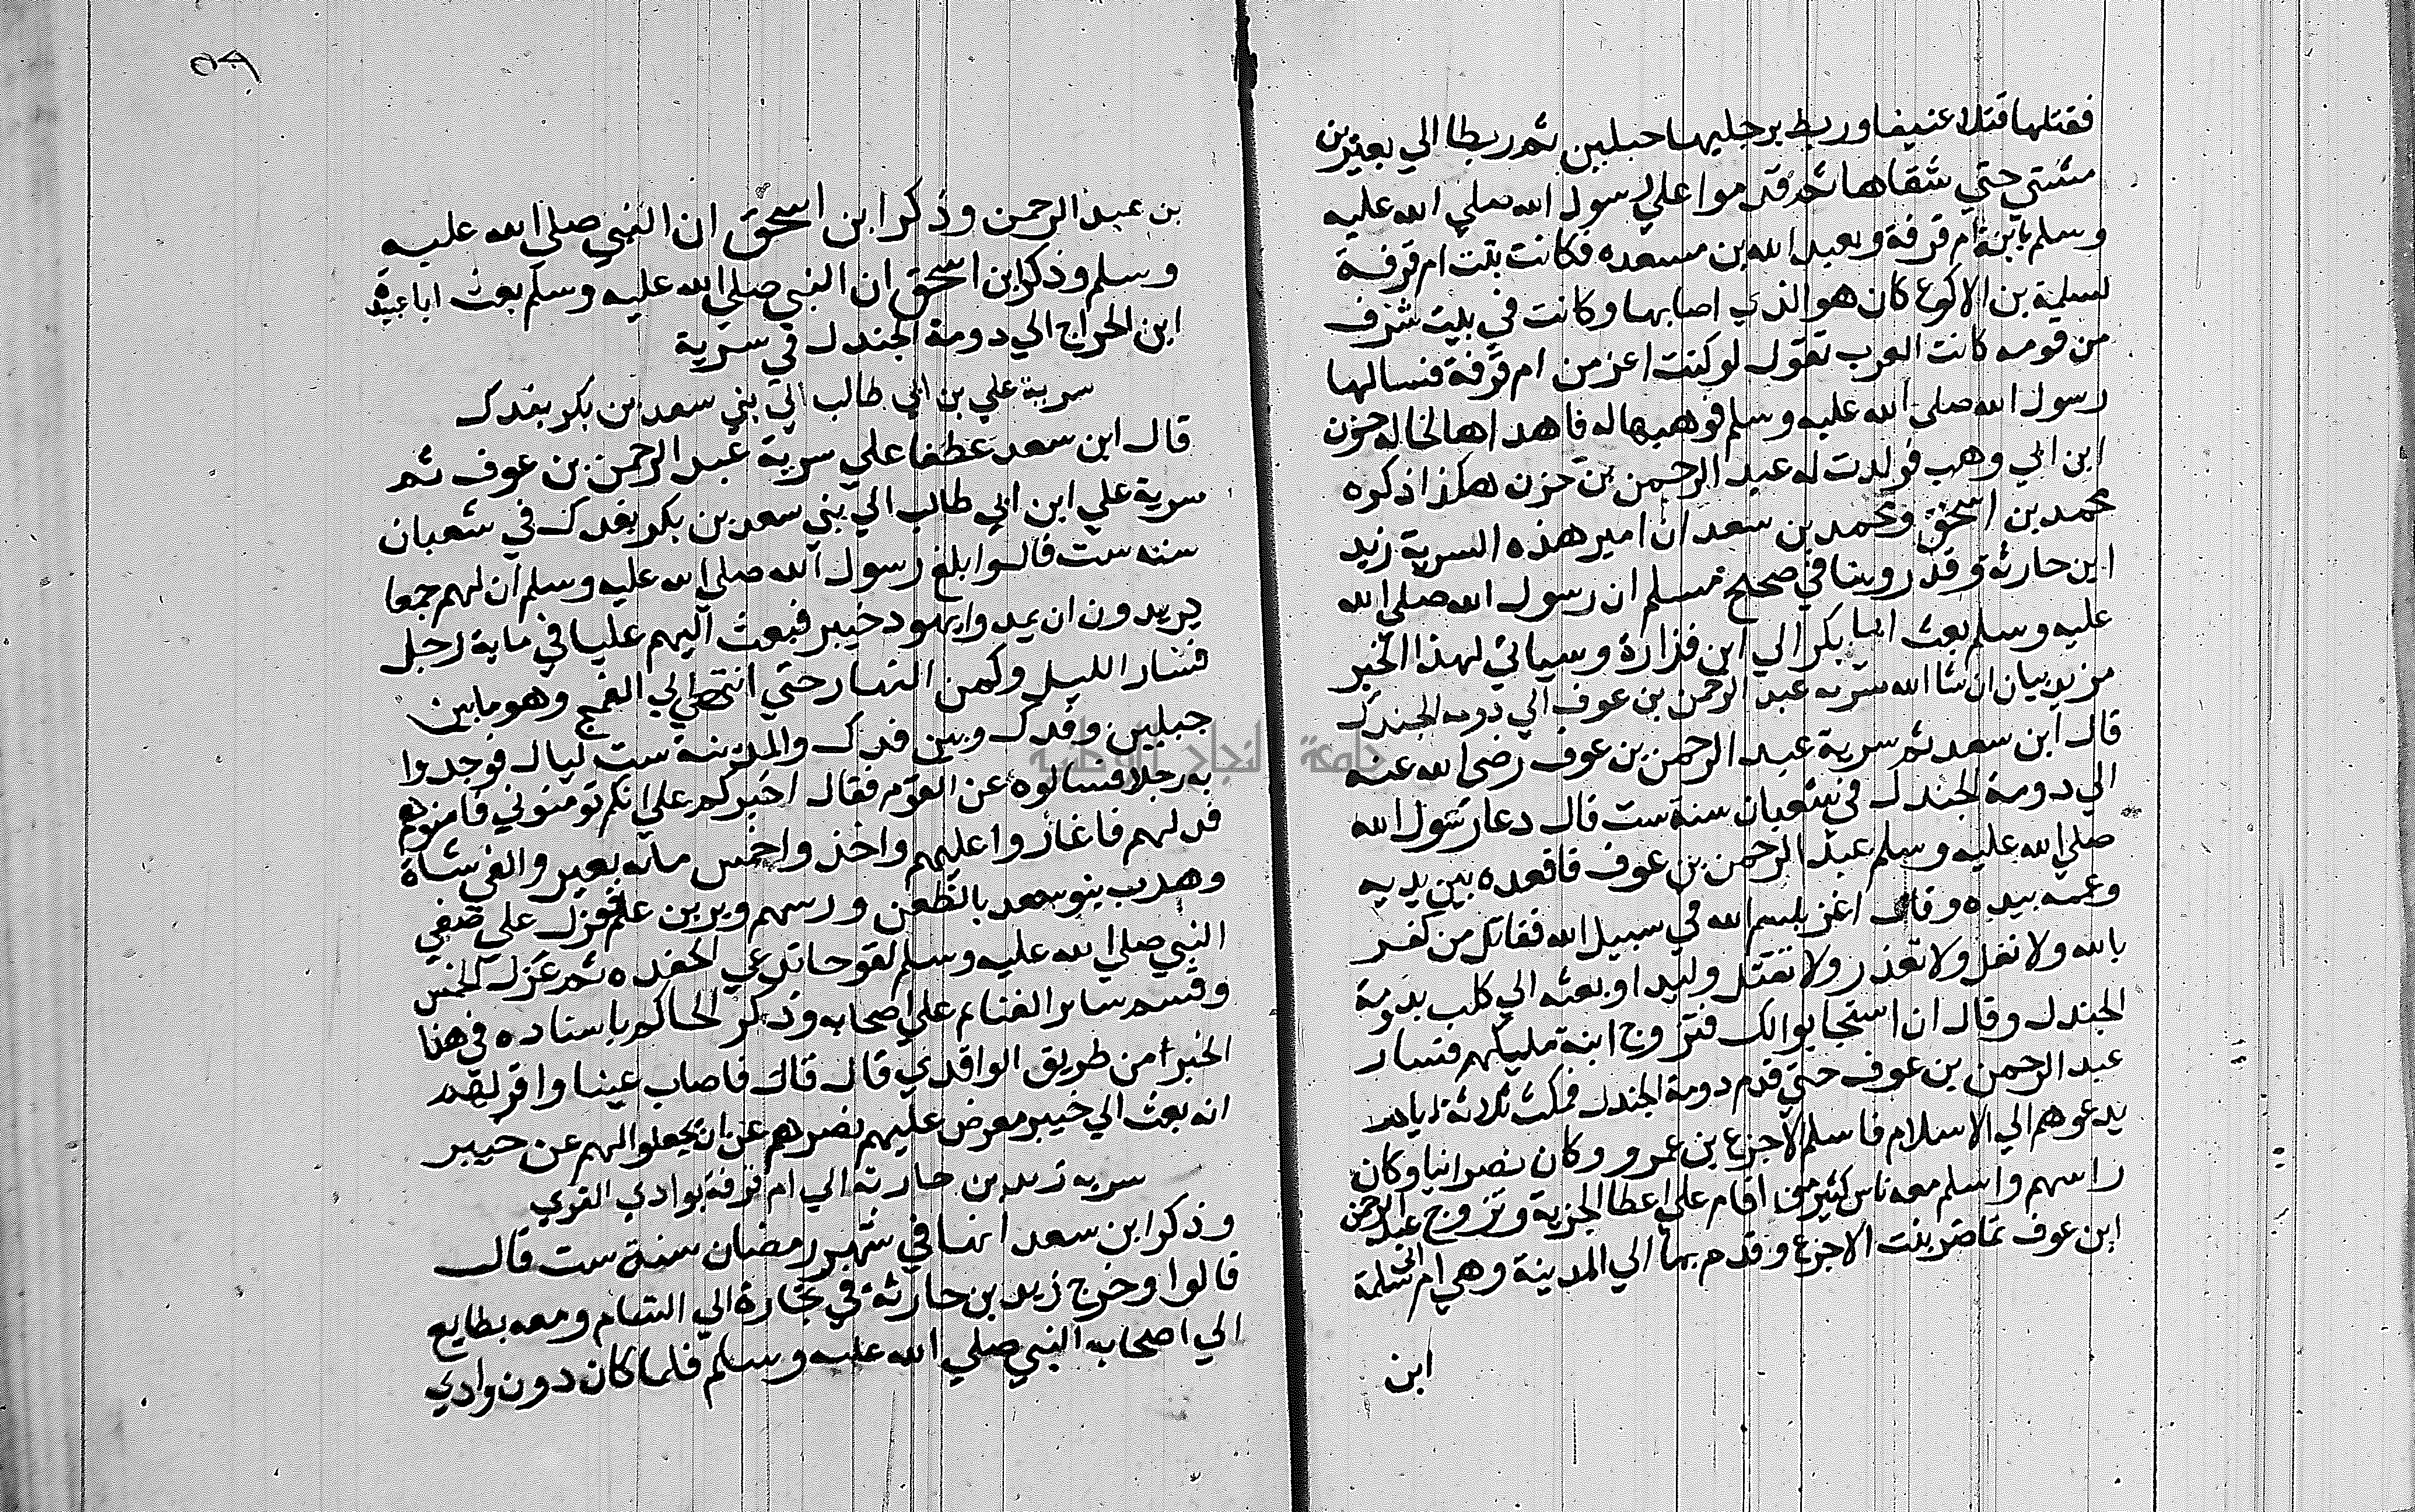 فقتلها قتلا عنيفا وربط برجليها حبلين ثم ربطا الي بعيرين
شتي حتي شقاها ثم قدموا علي رسول الله صلي الله عليه
وسلم بابنة ام قرفة وبعبد الله بن مسعده فكانت بنت ام قرفة
لسلمة بن الاكوع كان هو الذي اصابها وكانت في بيت شرف
من قومه كانت العرب تقول لو كنت اعز من ام قرفة فسالها
رسول الله صلي الله عليه وسلم فوهبها له فاهداها لخاله حزن
ابن ابي وهب فولدت له عبد الرحمن بن حزن هكذا ذكره
محمد بن اسحق ومحمد بن سعد ان امير هذه السرية زيد
ابن حارثة وقد روينا في صحيح مسلم ان رسول الله صلي الله
عليه وسلم بعث ابا بكر الي ابن فزارة وسياتي لهذا الخبر
مزيد بيان ان شا الله سريه عبد الرحمن بن عوف الي دومه الجندل
قال ابن سعد ثم سرية عبد الرحمن بن عوف رضي الله عنه
الي دومة الجندل في شعبان سنة ست قال دعا رسول الله
صلي الله عليه وسلم عبد الرحمن بن عوف فاقعده بين يديه
وعممه بيده وقال اغز بسم الله في سبيل الله فقاتل من كفر
بالله ولا تغل ولا تغدر ولا تقتل وليدا وبعثه الي كلب بدومة
الجندل وقال ان استجابوا لك فتزوج ابنة مليكهم فسار
عبد الرحمن بن عوف حتي قدم دومة الجندل فمكث ثلاثة ايام
يدعوهم الي الاسلام فاسلم الاجزع بن عمرو وكان نصرانيا وكان
راسهم واسلم معه ناس كثير من اقام علي اعطا الجزية وتزوج عبد الرحمن
ابن عوف تماضر بنت الاجزع وقدم بها الي المدينة وهي ام ابي سلمة
ابن
٥٨
بن عبد الرحمن وذكر ابن اسحق ان النبي صلي الله عليه
وسلم وذكر ابن اسحق ان النبي صلي الله عليه وسلم بعث ابا عبيدة
ابن الجراح الي دومة الجندل في سرية
سرية علي بن ابي طالب الي بني سعد بن بكر بفدك
قال ابن سعد عطفا علي سرية عبد الرحمن بن عوف ثم
سرية علي ابن ابي طالب الي بني سعد بن بكر بفدك في شعبان
سنه ست قالوا بلغ رسول الله صلي الله عليه وسلم ان لهم جمعا
يريدون ان يمدوا يهود خيبر فبعث اليهم عليا في ماية رجل
فسار الليل وكمن النهار حتي انتهي الي الغمج وهو ما بين
جبلين وفدك وبين فدك والمدينة ست ليال فوجدوا
به رجلا فسالوه عن القوم فقال اخبركم علي انكم تومنوني فامنوه
فدلهم فاغاروا عليهم واخذوا خمس مائه بعير والفي شاة
وهربت بنو سعد بالظعن ورسهم وبر بن عليم فعزل علي صفي
النبي صلي الله عليه وسلم لقوحا تدعي الحفده ثم عزل الخمس
وقسم ساير الغنايم علي اصحابه وذكر الحاكم باسناده في هذا
الخبر من طريق الواقدي قال قال فاصاب عينا واقر لهم
انه بعث الي خيبر معرض عليهم نصرهم علي ان يجعلوا لهم عن خيبر
سريه زيد بن حارثة الي ام قرفة بوادي القري
وذكر ابن سعد انها في شهر رمضان سنة ست قال
قالوا وخرج زيد بن حارثة في تجارة الي الشام ومعه بطايع
الي اصحاب النبي صلي الله عليه وسلم فلما كان دون وادي
جامعة النجاح الوطنية